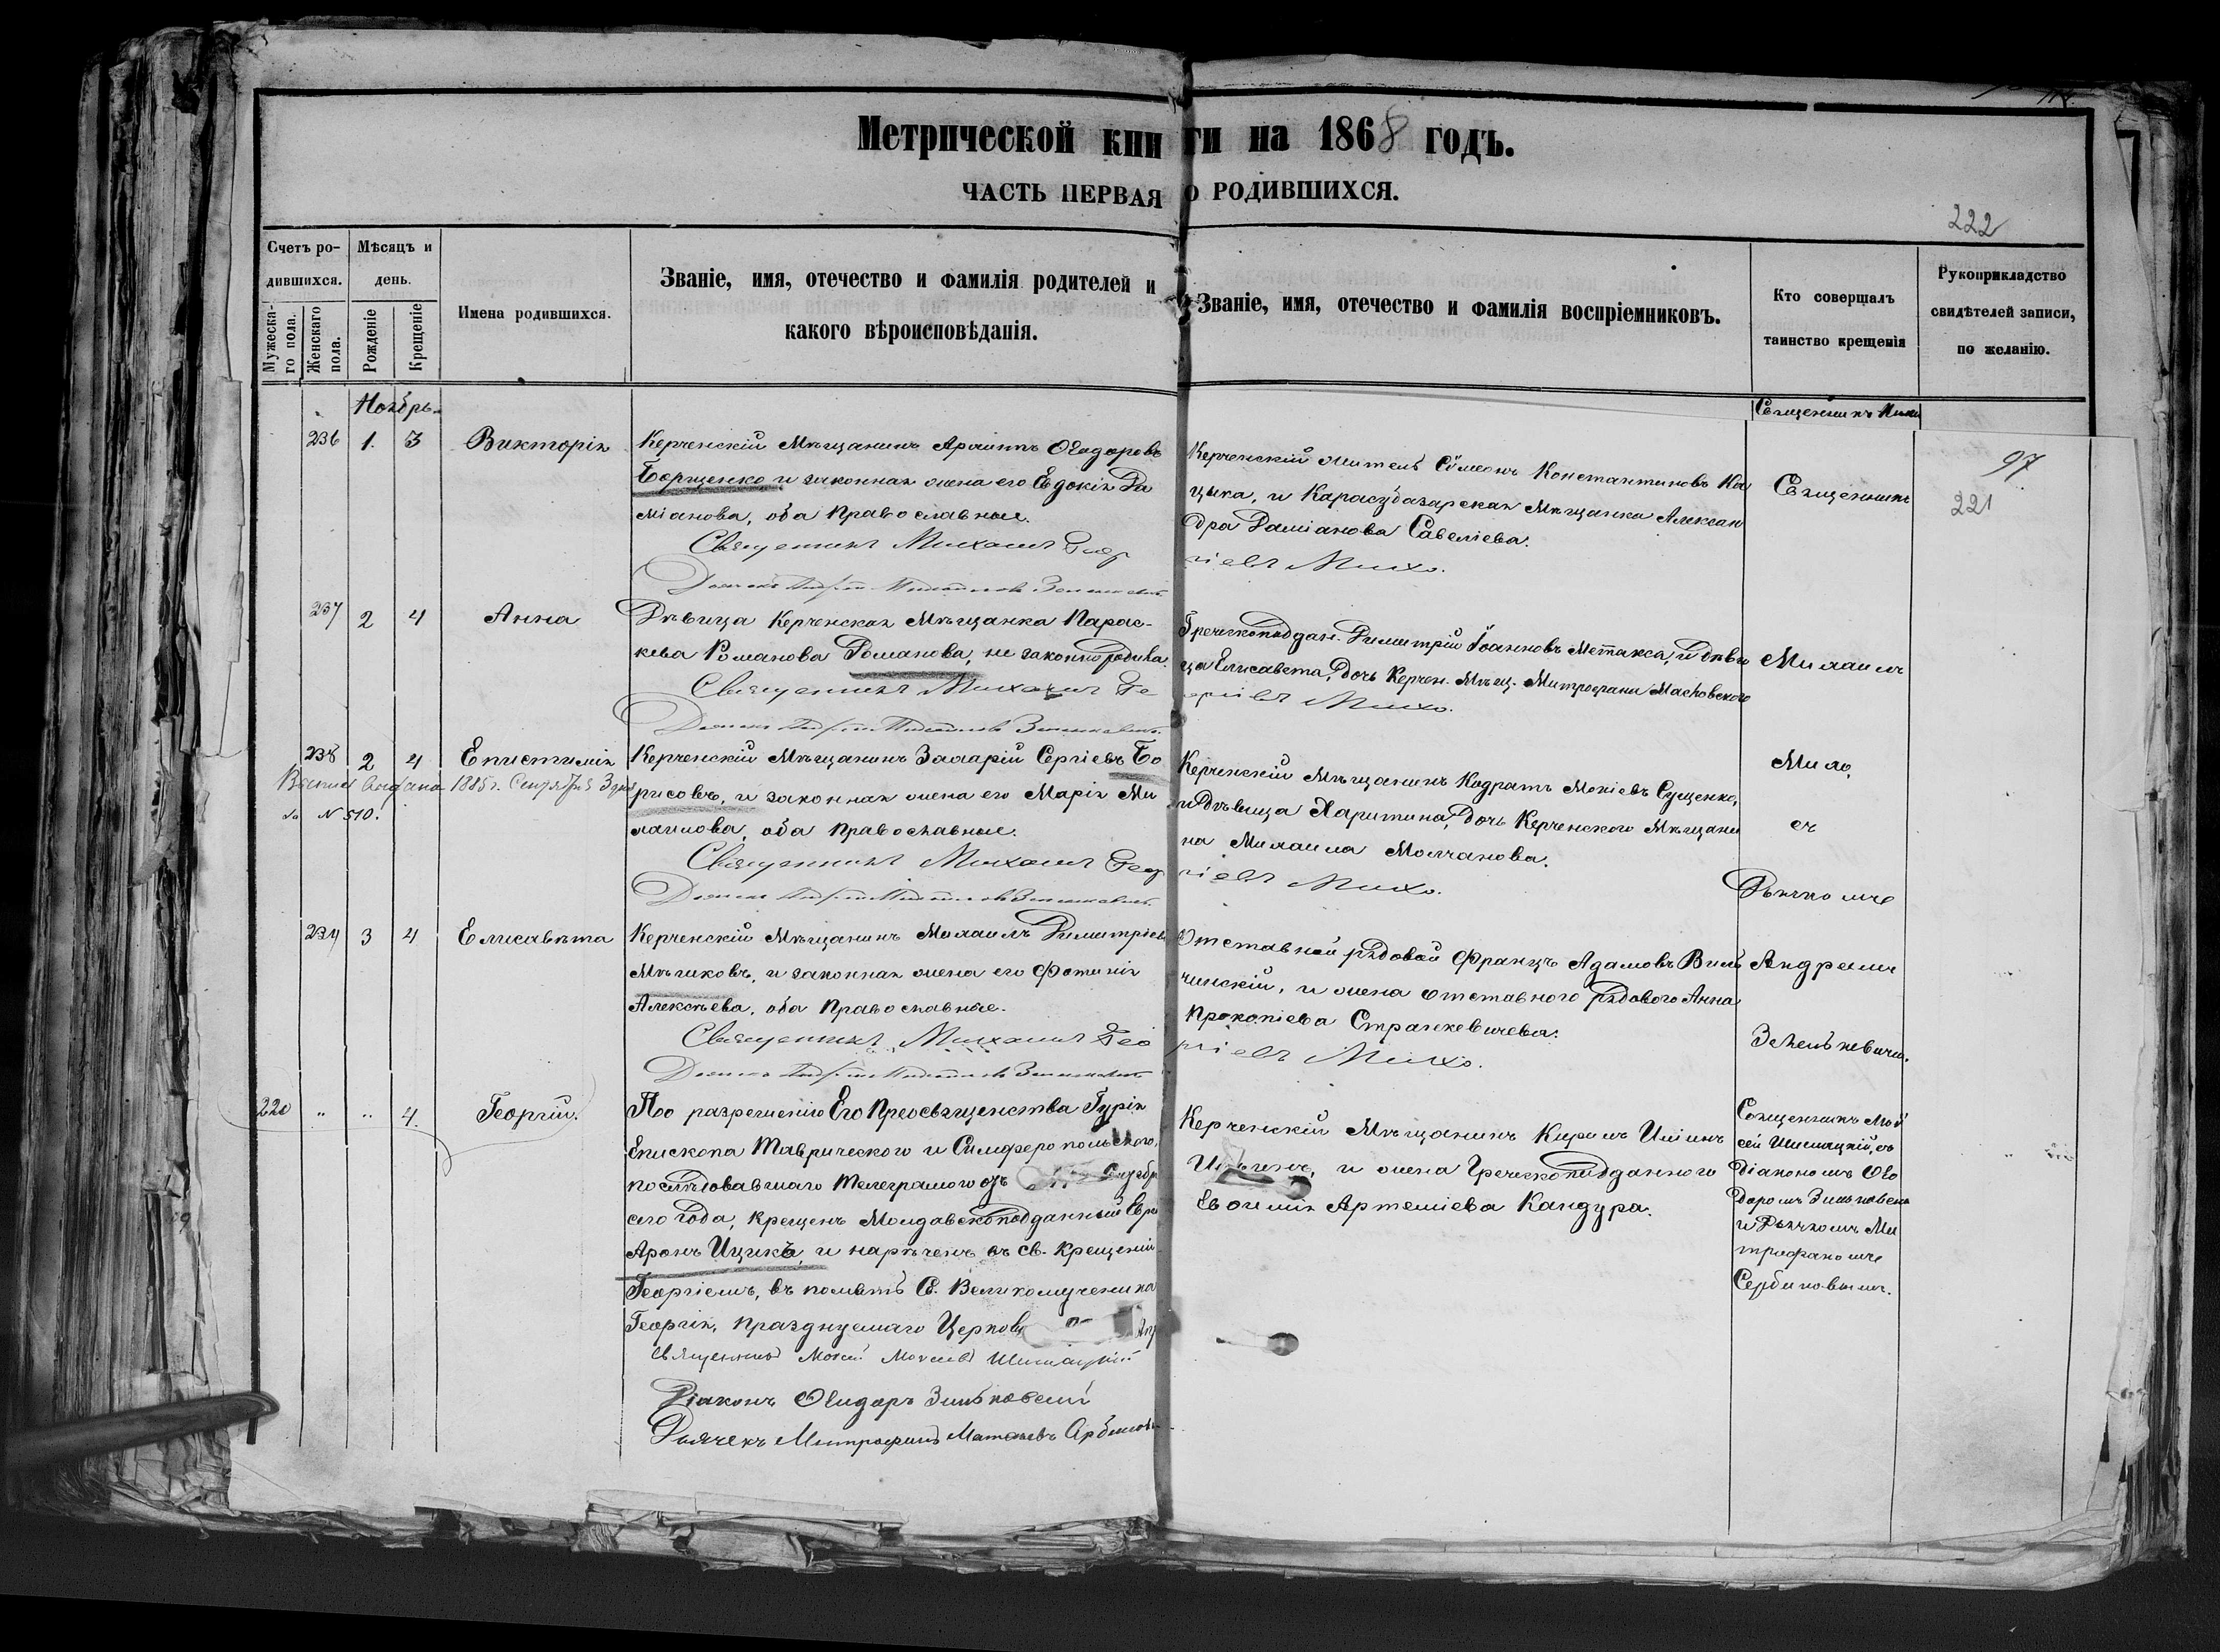 Метрической книги на 1868 годъ.
ЧАСТЬ ПЕРВАЯ О РОДИВШИХСЯ.
222
Счетъ ро-
дившихся.
Мужеска-
го пола.
Женскаго
пола.
Мѣсяцъ и
день.
Рожденіе
Крещеніе
Имена родившихся.
Званіе, имя, отечество и фамилія родителей и
какого вѣроисповѣданія.
Званіе, имя, отечество и фамилія воспріемниковъ.
Кто совершалъ
таинство крещенія
Рукоприкладство
свидѣтелей записи,
по желанію.
Ноябрь.
Священникъ
97
221
236 1. 3 Викторія
Керченскій Мѣщанинъ Архипъ Ѳеодоровъ
Борщенко и законная жена его Евдокія Да
міанова, оба Православные.
Священникъ Михаилъ Геор
гіевъ Михо.
Керченскій житель Сѵмеонъ Константиновъ Ка
цыка, и Карасубазарская Мѣщанка Алексан
дра Даміанова Савеліева.
Священникъ
237 2 4 Анна
Дѣвица Керченская Мѣщанка Парас-
кева Романова Романова, не законно родила.
Священникъ Михаилъ Ге
оргіевъ Михо.
Греческоподдан. Димитрій Іоанновъ Метакса, и дѣви
ца Елисавета, дочь Керчен. Мѣщ. Митрофана Масковского
Михаилъ
238 2 4 Епистимія
1885 г. Сентября 3 дня
за N 510.
Керченскій Мѣщанинъ Захарій Сергіевъ Бо
рисовъ, и законная жена его Марія Ми
хаилова, оба Православные.
Священникъ Михаилъ Геор
гіевъ Михо.
Керченскій Мѣщанинъ Кодратъ Мокіевъ Сущенко,
и Дѣвица Харитина, дочь Керченского Мѣщани
на Михаила Молчанова.
Михо,
съ
Дьячкомъ
239 3 4 Елисавѣта
Керченскій Мѣщанинъ Михаилъ Димитріевъ
Мѣшковъ, и законная жена его Фотинія
Алексѣева, оба Православные.
Священникъ Михаилъ Гео
ргіевъ Михо.
Отставной рядовой Францъ Адамовъ Виль
чинскій, и жена отставного рядового Анна
Прокопіева Странкевичева.
Андреемъ
Зеленкевичи.
220 " " 4. Георгій.
По разрешенію Его Преосвященства Гурія
Епископа Таврического и Симферопольского,
послѣдовавшаго телеграмого отъ
сего года, крещенъ Молдавскоподданный Евре
Аронъ Ицикъ, и нареченъ въ св. Крещеніи
Георгіемъ, въ память Св. Великомученика
Георгія, празднуемаго Церковію
Священникъ Мокій Мокіевъ Шимацкій
Діаконъ Ѳеодоръ Зиньковскій
Дьячекъ Митрофанъ
Керченскій Мѣщанинъ Кирилъ Иліинъ
Ильинъ, и жена Греческоподданного
Евѳимія Артеміева Кандура.
Священникъ Мой
сей Шимацкій, съ
Діакономъ Ѳео
доромъ Зиньковскимъ
и Дьячкомъ Ми
трофаномъ
Сербиновымъ.